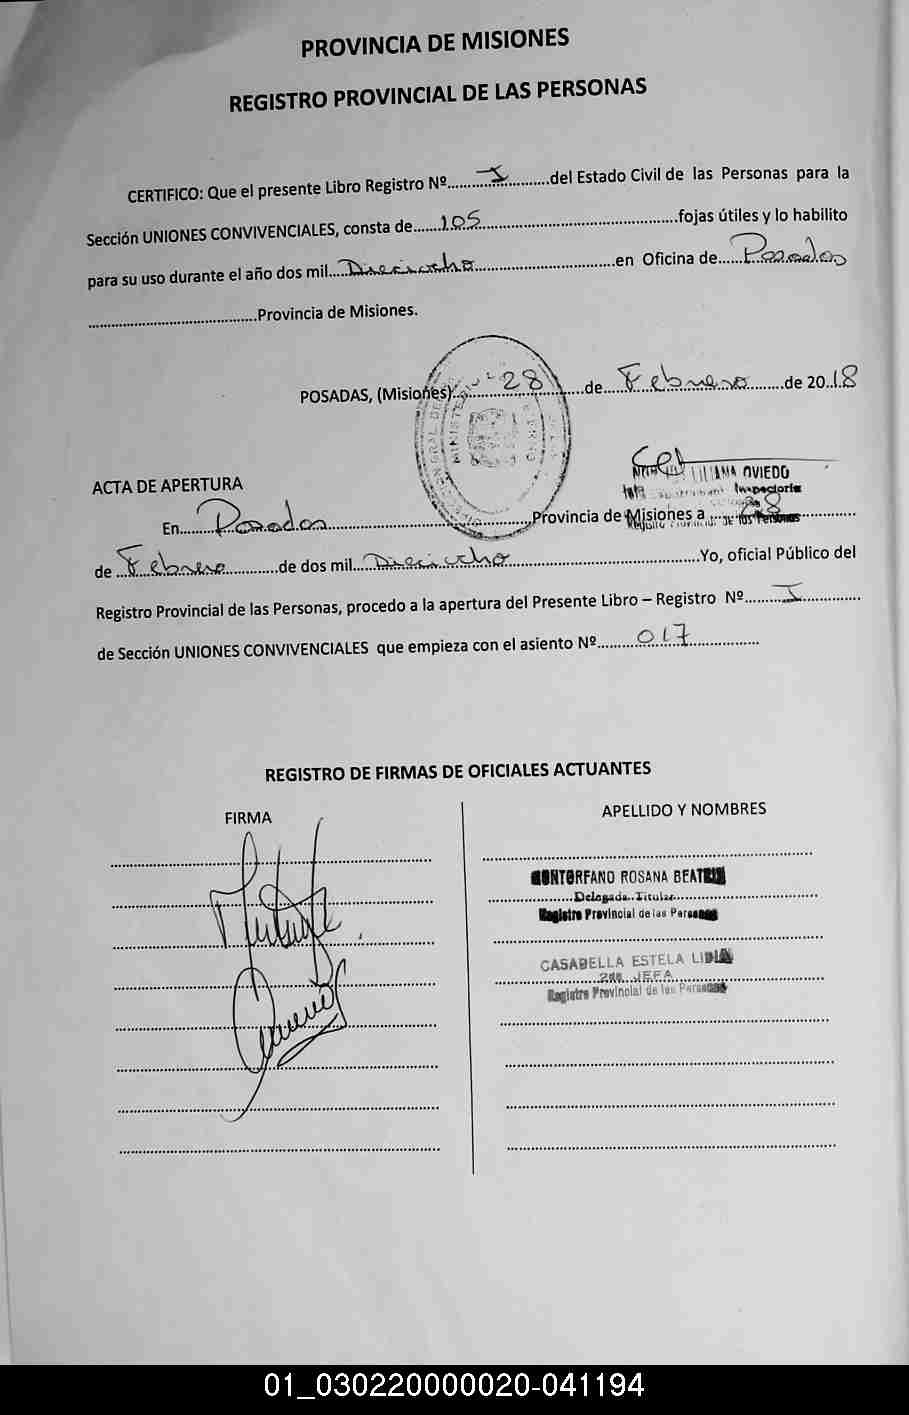 PROVINCIA DE MISIONES
REGISTRO PROVINCIAL DE LAS PERSONAS
CERTIFICO: Que el presente Libro Registro Nº......I......del Estado Civil de las Personas para la
Sección UNIONES CONVIVENCIALES, consta de......105......fojas útiles y lo habilito
para su uso durante el año dos mil...Dieciocho......en Oficina de......Posadas
......Provincia de Misiones.
POSADAS, (Misiones)......28......de...Febrero......de 20..18
ACTA DE APERTURA
LILIANA OVIEDO
Inspectoria
En......Posadas......Provincia de Misiones a ......28......
de ...Febrero......de dos mil...Dieciocho......Yo, oficial Público del
Registro Provincial de las Personas, procedo a la apertura del Presente Libro – Registro Nº......I......
de Sección UNIONES CONVIVENCIALES que empieza con el asiento Nº......017......
REGISTRO DE FIRMAS DE OFICIALES ACTUANTES
FIRMA APELLIDO Y NOMBRES
ROSANA BEATRIZ
Delegada Titular
Registro Provincial de las Personas
CASABELLA ESTELA LIDIA
JEFA
Registro Provincial de las Personas
01_030220000020-041194